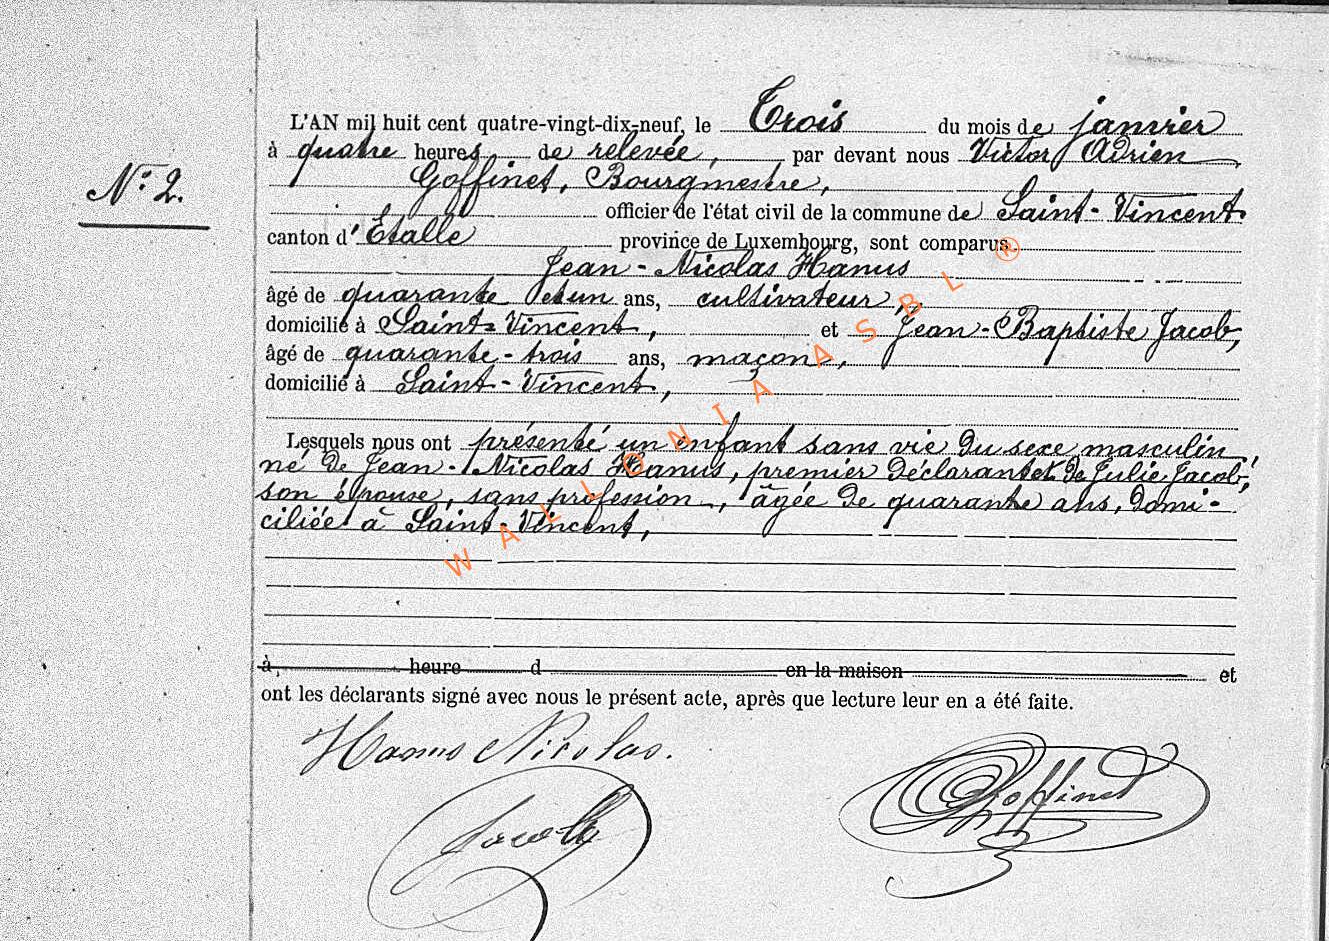 L'AN mil huit cent quatre-vingt-dix-neuf, le Trois du mois de janvier
à quatre heures de relevée, par devant nous Victor Adrien
N° 2.
Goffinet, Bourgmestre,
officier de l'état civil de la commune de Saint-Vincent
canton d'Etalle province de Luxembourg, sont comparus
Jean-Nicolas Hanus
âgé de quarante et un ans, cultivateur,
domicilié à Saint-Vincent, et Jean-Baptiste Jacob,
âgé de quarante-trois ans, maçon,
domicilié à Saint-Vincent,
Lesquels nous ont présenté un enfant sans vie du sexe masculin,
né de Jean-Nicolas Hanus, premier déclarant et de Julie Jacob,
son épouse, sans profession, âgée de quarante ans, domi-
ciliée à Saint-Vincent,
à, heure d en la maison et
ont les déclarants signé avec nous le présent acte, après que lecture leur en a été faite.
Hanus Nicolas.
Jacob
Goffinet
WALLONIA ASBL ®